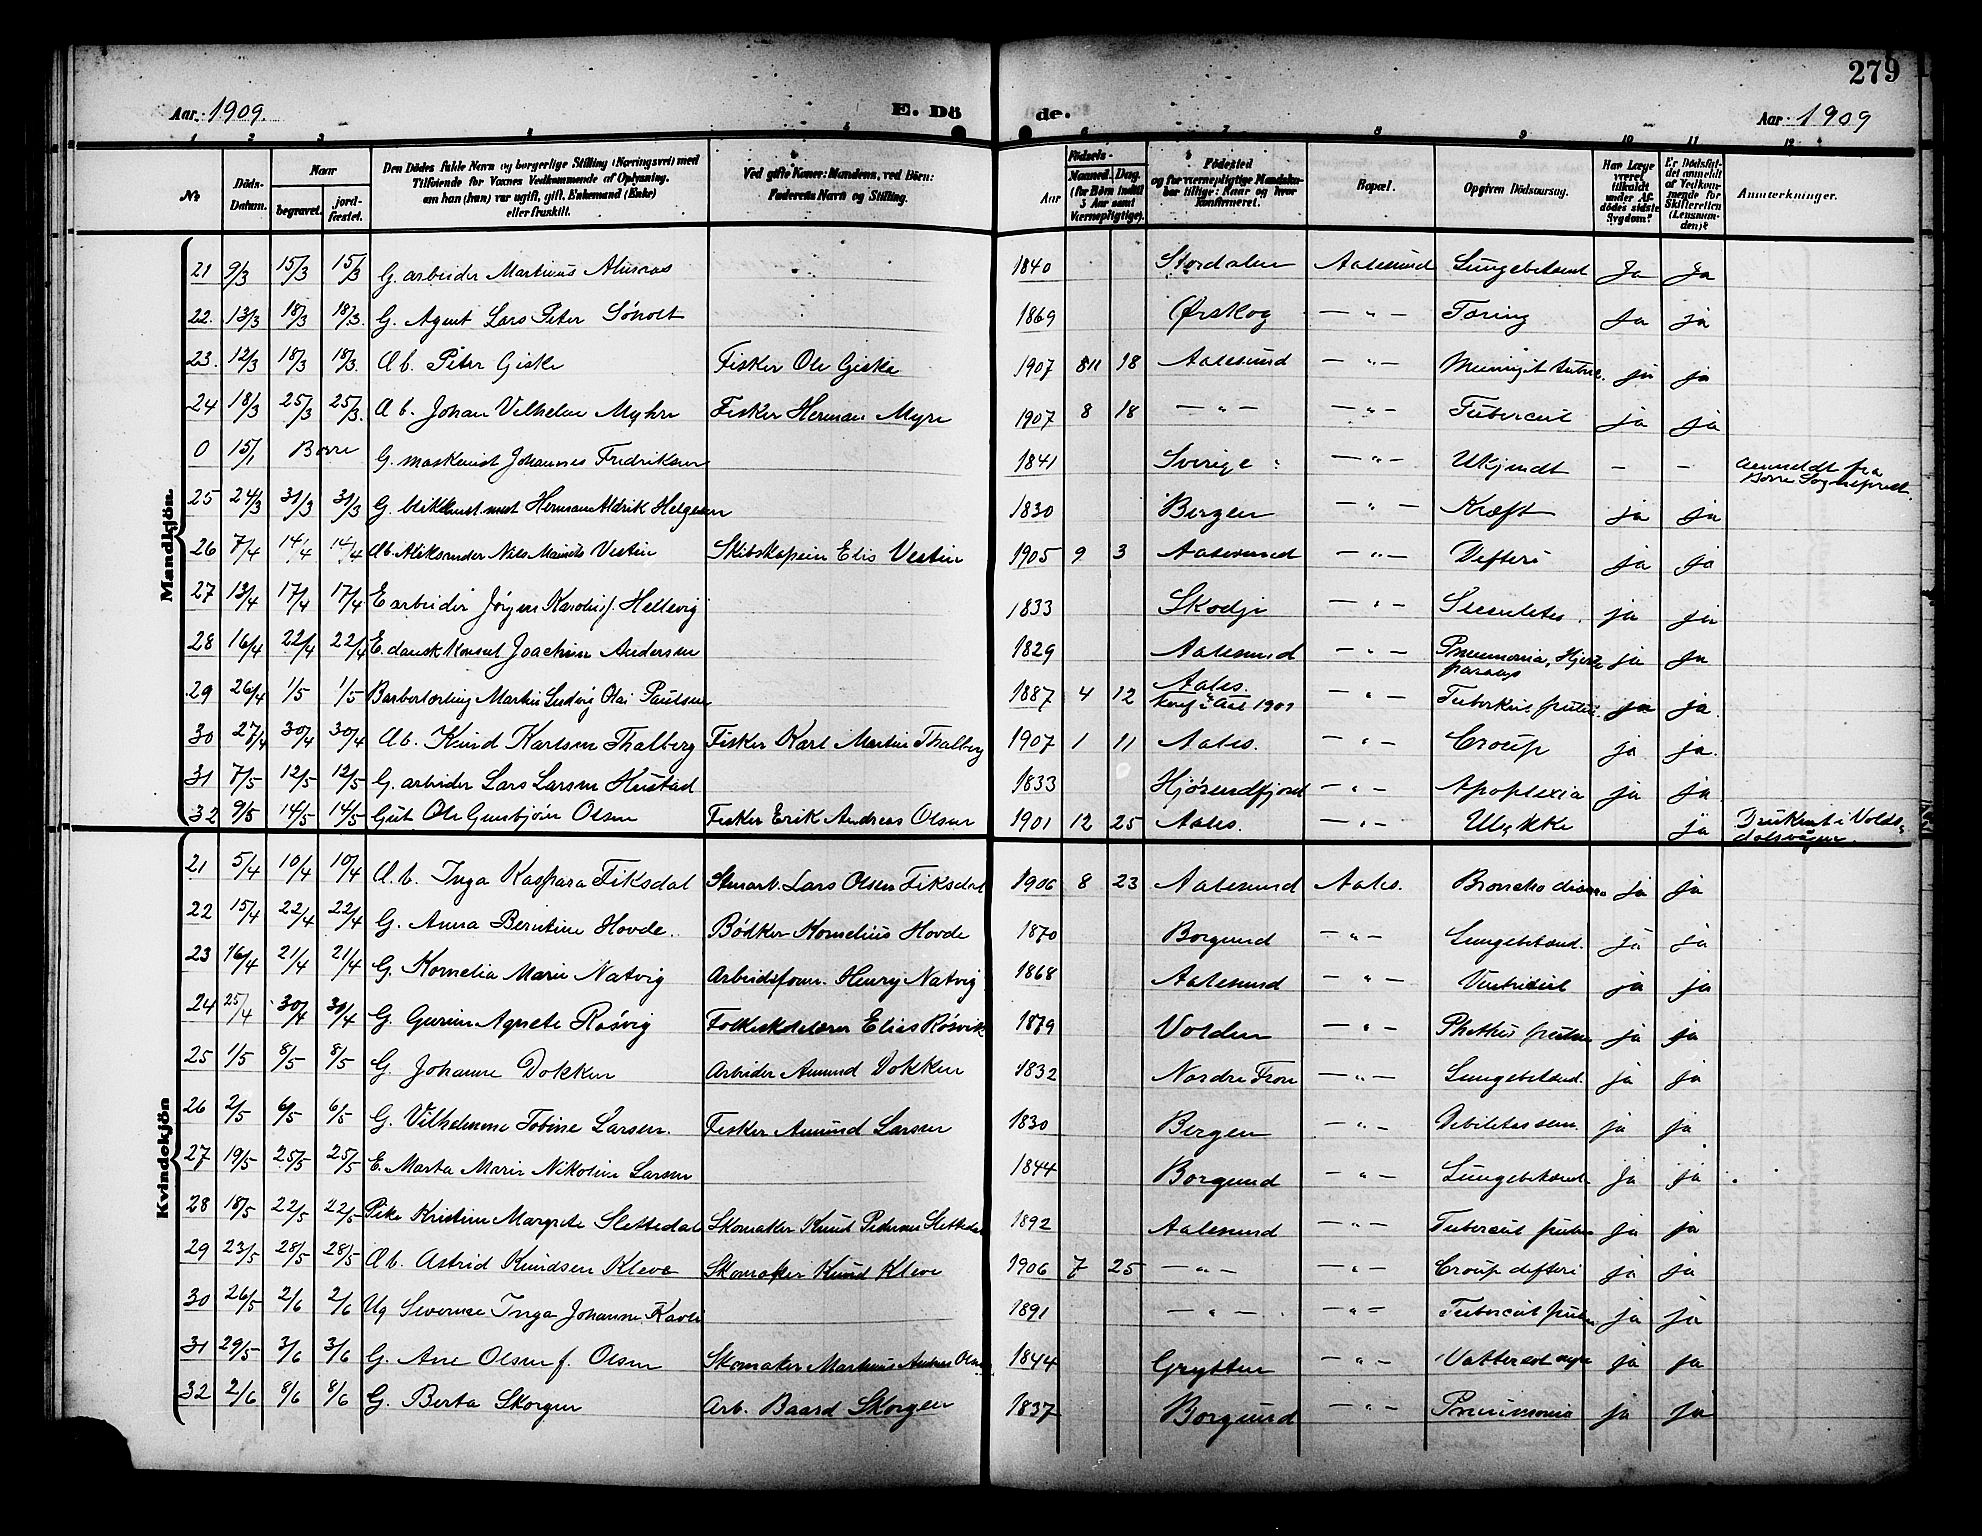 279
Aar 1909. E. Dö de. Aar 1909
1 2 3 4 5 6 7 8 9 10 11 12
No Döds-Datum. Naar begravet. jord-fæstet. Den Dödes fulde Navn og borgerlige Stilling (Næringsvei) med Tilföiende for Voxnes Vedkommende af Oplysning, om han (hun) var ugift, gift, Enkemand (Enke) eller fraskilt. Ved gifte Koner: Mandens, ved Börn: Faderens Navn og Stilling. Aar Födsels- Maaned. Dag. (for Börn indtil 3 Aar samt Værnepligtige). Födested og for værnepligtige Mandskaber tillige: Naar og hvor konfirmeret. Bopæl. Opgiven Dödsaarsag. Har Læge været tilkaldt under Afdödes sidste Sygdom? Er Dödsfaldet anmeldt af Vedkommende for Skifteretten (Lensmanden)? Anmærkninger.
Mandkjön.
21 9/3 15/3 15/3 G. arbeider Martinus Alnsaas 1840 Stordalen Aalesund Lungebetænd Ja Ja
22. 13/3 18/3 18/3. G. Agent Lars Peter Søholt 1869 Ørskog — " — Tæring Ja ja
23. 12/3 18/3 18/3. Ab. Peter Giske Fisker Ole Giske 1907 8 11 18 Aalesund — " — Meningit tuberc. ja ja
24 18/3 25/3 25/3. Ab. Johan Vilhelm Myhre Fisker Herman Myre 1907 8 18 — " — — " — Tubercul ja ja
0 15/1 Borre G. maskinist Johannes Fredriksen 1841 Sverige — " — Ukjendt — — Anmeldt fra Borre Sogneprest.
25 24/3 31/3 31/3 G. blikkensl. mest Herman Aldrik Helgesen 1830 Bergen — " — Kræft ja ja
26 7/4 14/4 14/4 Ab. Aleksander Nils Vestin Skibskaptein Elis Vestin 1905 9 3 Aalesund — " — Defteri ja ja
27 13/4 17/4 17/4 E arbeider Jørgen Hellevig 1833 Skodje — " — ja ja
28 16/4 22/4 22/4 E. dansk Konsul Joachim Andersen 1829 Aalesund — " — Pneumonia, Hjerte ja ja
29 26/4 1/5 1/5 Barberlærling Martin Ludvig Olai Paulsen 1887 4 12 Aales. — " — ja ja.
30 27/4 30/4 30/4 Ab. Knud Karlsen Thalberg Fisker Karl Martin Thalberg 1907 1 11 Aales. — " — Croup ja ja.
31 7/5 12/5 12/5 G. arbeider Lars Larsen Hustad 1833 Hjørendfjord — " — Apoplexia ja ja
32 9/5 14/5 14/5 Gut Ole Gunbjørn Olsen Fisker Erik Andreas Olsen 1901 12 25 Aales. — " — Ulykke ja Druknet i Voldsdalsvågen.
Kvindekjön
21 5/4 10/4 10/4 Ab. Inga Kaspara Fiksdal Stenarb. Lars Olsen Fiksdal 1906 8 23 Aalesund Aales. Broncho ja ja
22 15/4 22/4 22/4 G. Anna Berntine Hovde. Bødker Kornelius Hovde 1870 Borgund — " — Lungebetænd. ja ja
23 16/4 21/4 21/4 G. Kornelia Marie Natvig Arbeidsform. Henry Natvig 1868 Aalesund — " — ja ja
24 25/4 30/4 30/4 G. Agnete Røsvig Folkeskolelærer Elias Røsvik 1879 Volden — " — ja ja
25 1/5 8/5 8/5 G. Johanne Dokken Arbeider Amund Dokken 1832 Nordre Fron — " — Lungebetænd. ja ja
26 2/5 6/5 6/5 G. Vilhelmine Tobine Larsen. Fisker Amund Larsen 1830 Bergen — " — Debilitas sen. ja ja
27 19/5 25/5 25/5 E. Marta Marie Nikoline Larsen 1844 Borgund — " — Lungebetænd. ja ja
28 18/5 22/5 22/5 Pike Kristine Margrete Slettedal Skomaker Knut Pedersen Slettedal 1892 Aalesund — " — Tubercul pulm ja ja
29 23/5 28/5 28/5 Ab. Astrid Knudsen Kleve Skomaker Knud Kleve 1906 7 25 — " — — " — Croup defteri ja ja
30 26/5 2/6 2/6 Ug Severine Inga Johanne Kavli 1891 — " — — " — Tubercul pulm ja ja
31 29/5 3/6 3/6 G. Ane Olsen f. Olsen Skomaker Martinus Andreas Olsen 1844 Grytten — " — ja ja
32 2/6 8/6 8/6 G. Berta Skorgen Arb. Baard Skorgen 1837 Borgund — " — Pneumonia ja ja